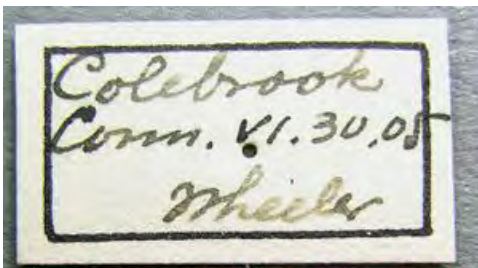 Colebrook
Conn. VI.30,05
Wheeler